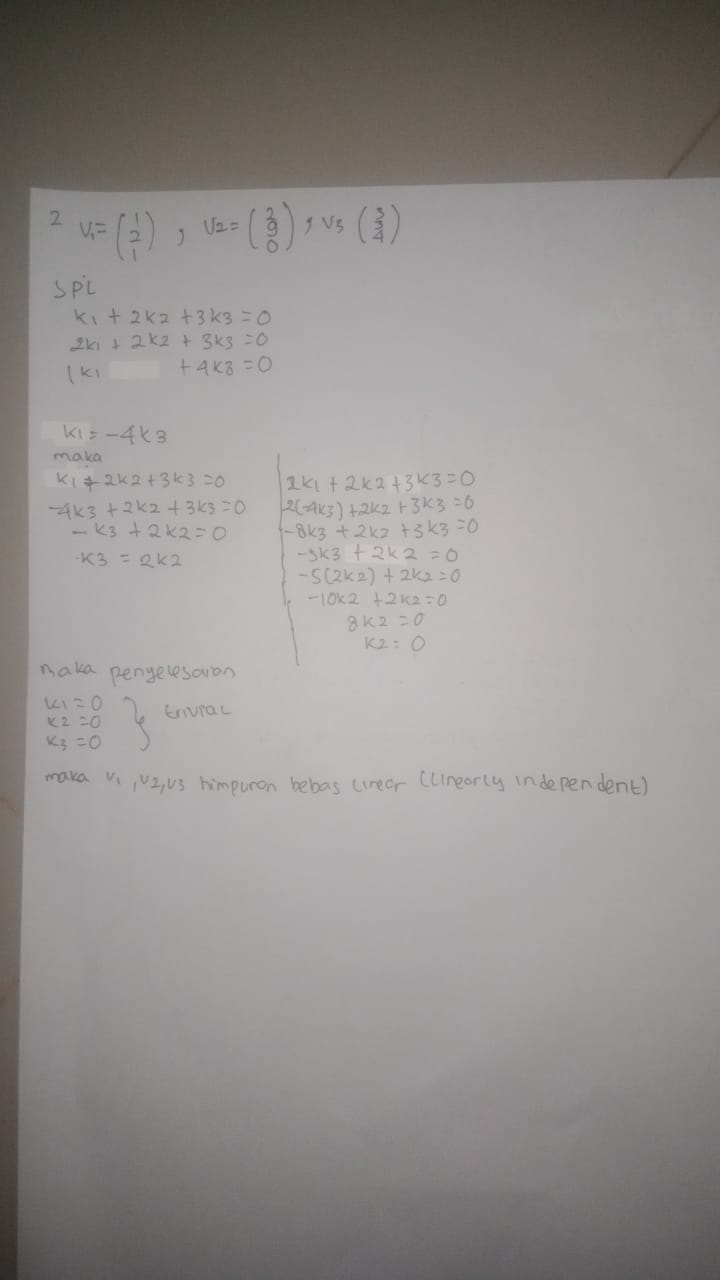 2 V1= (1 2 1) , V2= (2 9 0) , V3 (3 3 4)
SPL
k1 + 2k2 + 3k3 = 0
2k1 + 2k2 + 3k3 = 0
1k1 + 4k3 = 0
k1 = -4k3
maka
k1 + 2k2 + 3k3 = 0
-4k3 + 2k2 + 3k3 = 0
-k3 + 2k2 = 0
-k3 = 2k2
2k1 + 2k2 + 3k3 = 0
2(-4k3) + 2k2 + 3k3 = 0
-8k3 + 2k2 + 3k3 = 0
-5k3 + 2k2 = 0
-5(2k2) + 2k2 = 0
-10k2 + 2k2 = 0
8k2 = 0
k2 = 0
maka penyelesaian
k1 = 0
k2 = 0
k3 = 0
} trivial
maka v1, v2, v3 himpunan bebas linear (linearly independent)